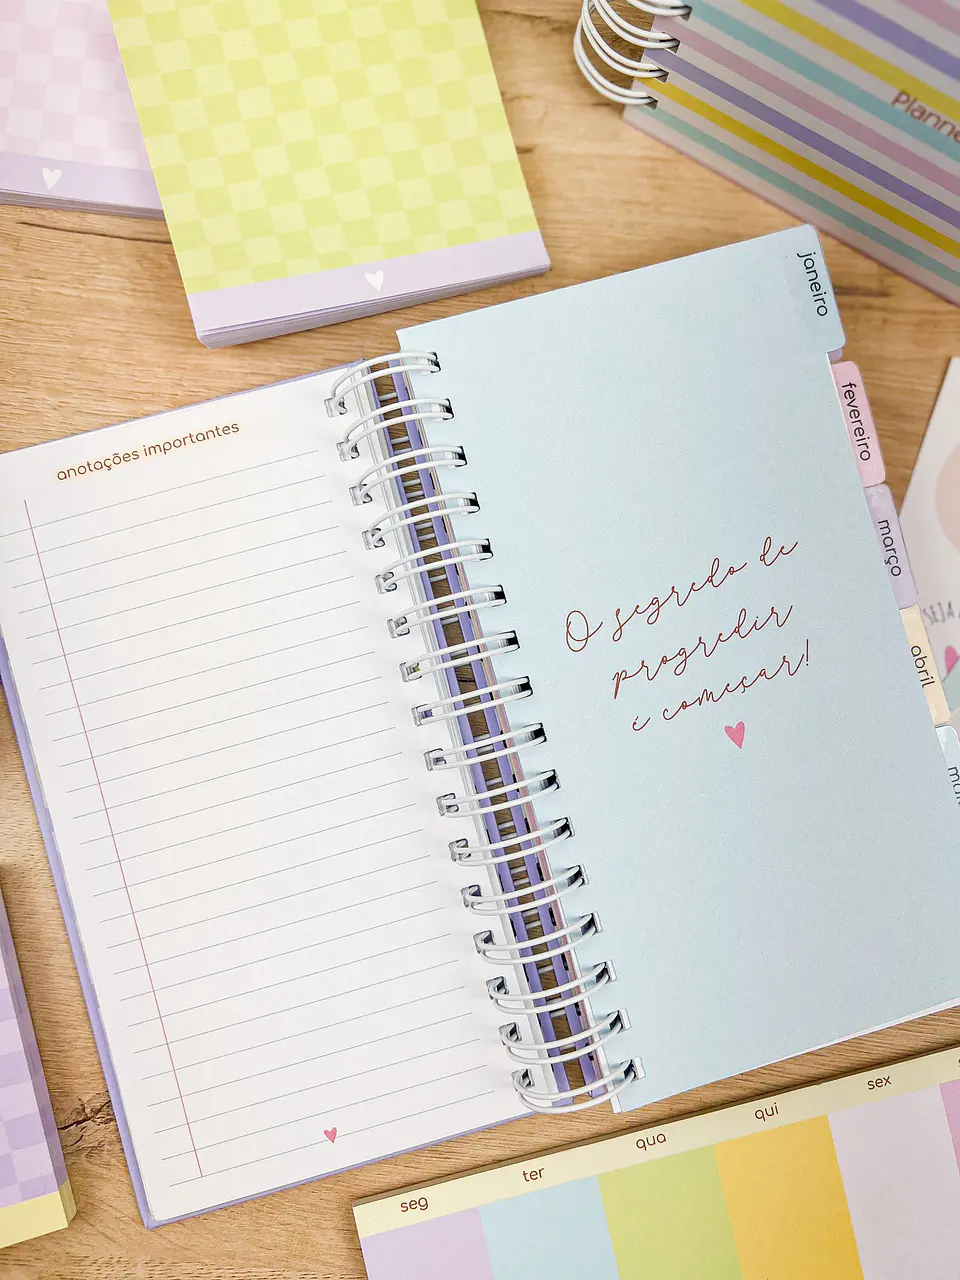 anotações importantes
O segredo de
progredir
é começar!
janeiro
fevereiro
março
abril
seg
ter
qua
qui
sex